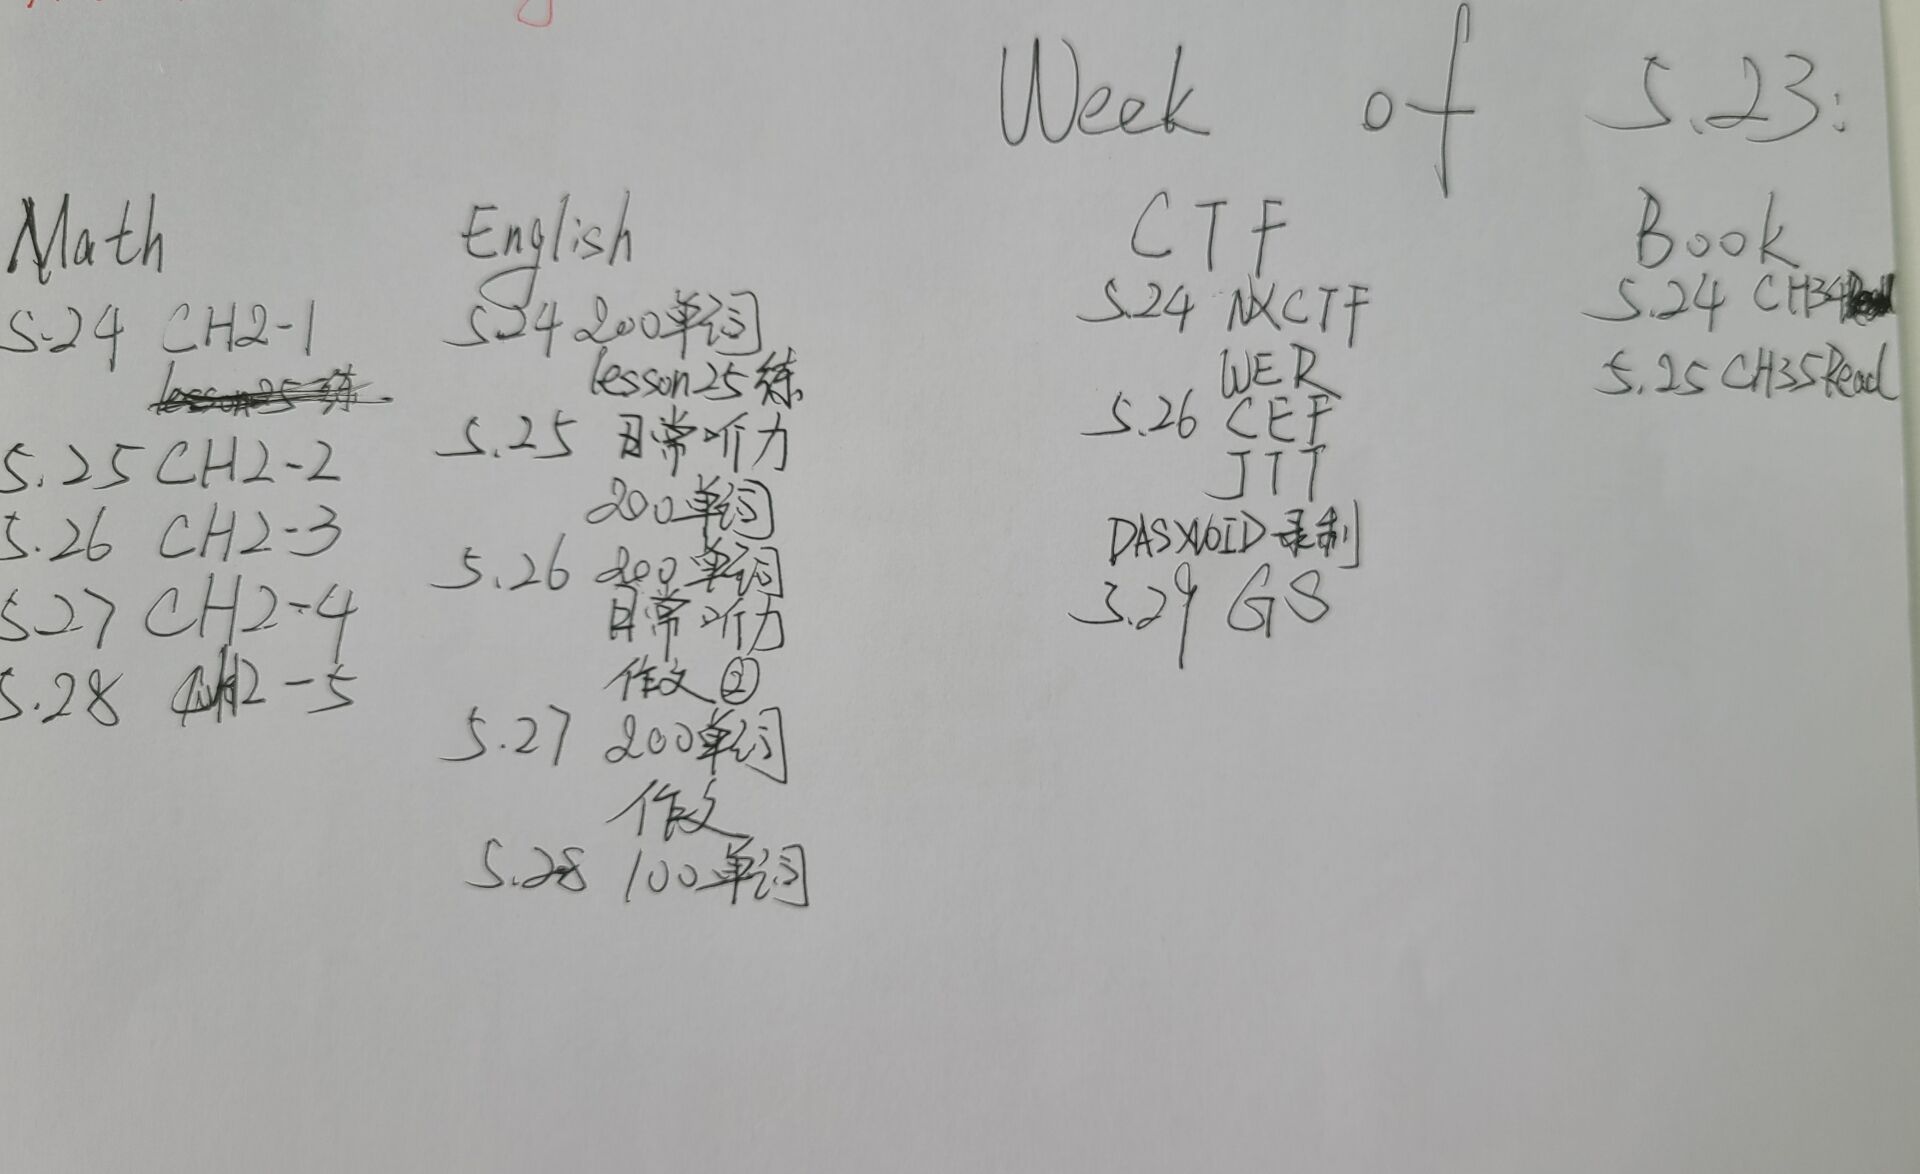 Week of 5.23:
Math
5.24 CH2-1
lesson25练
5.25 CH2-2
5.26 CH2-3
5.27 CH2-4
5.28 CH2-5
English
5.24 200单词
lesson25练
5.25 日常听力
200单词
5.26 200单词
日常听力
作文②
5.27 200单词
作文
5.28 100单词
CTF
5.24 NXCTF
WER
5.26 CEF
JTT
DASXVOID录制
5.29 GS
Book
5.24 CH34
5.25 CH35Read